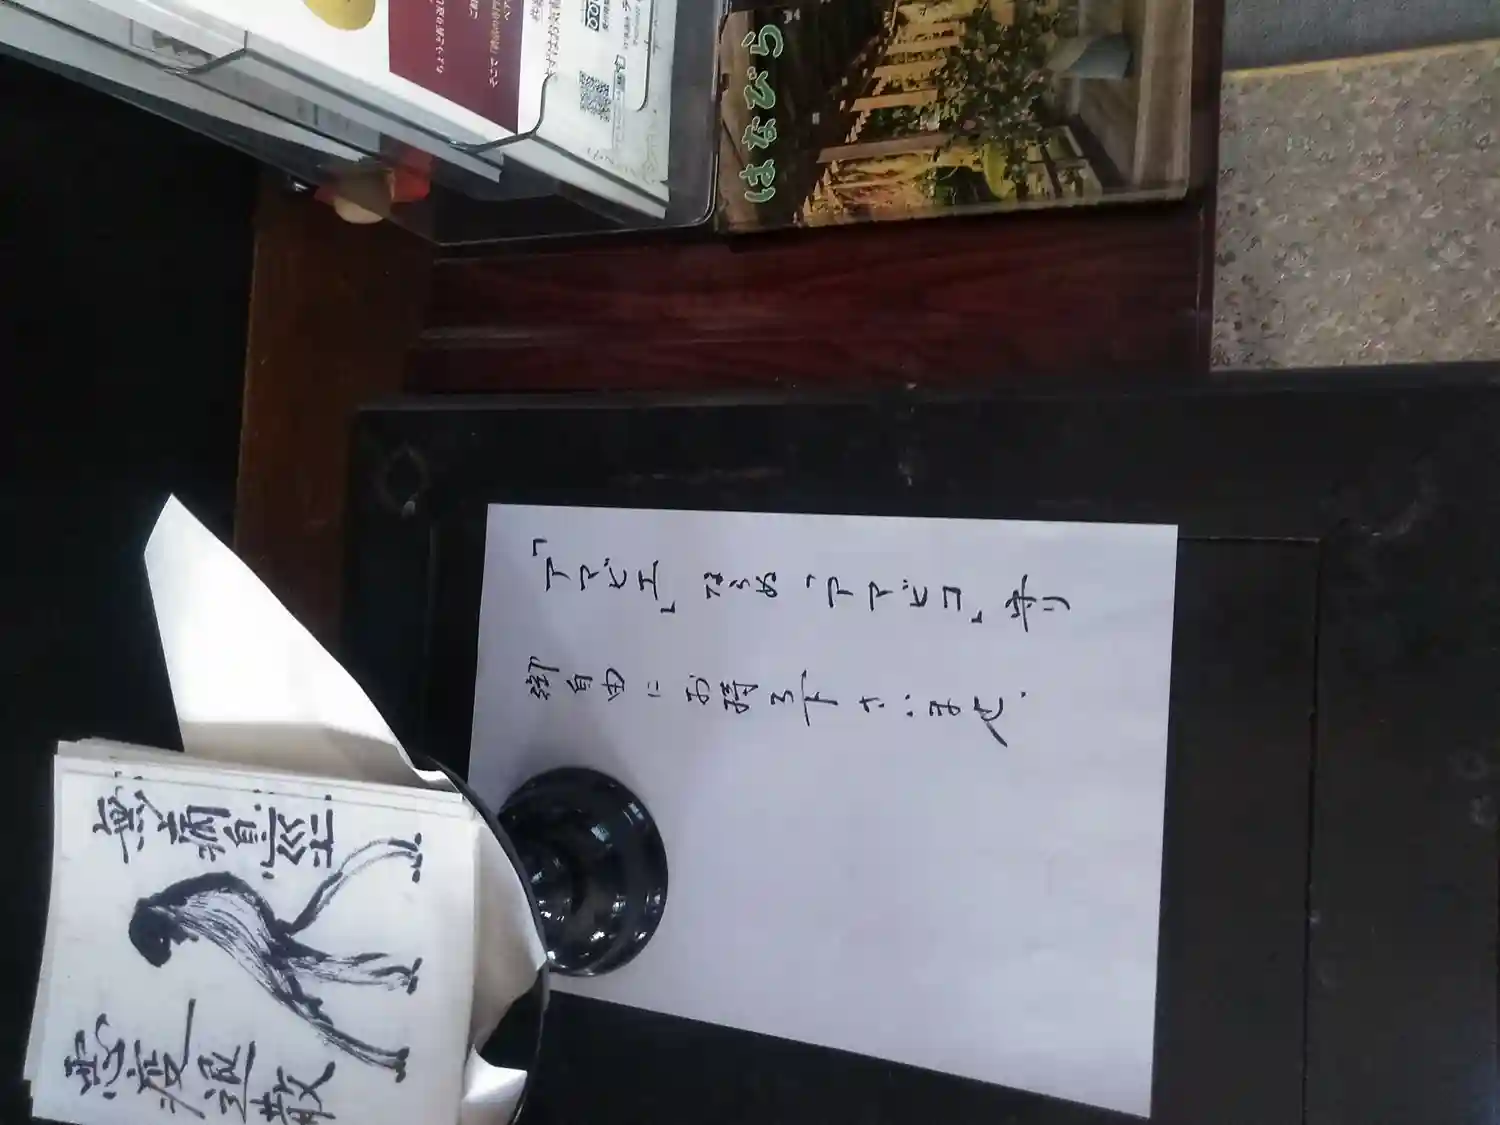 はなびら
「アマビエ」ならぬ「アマビコ」守り
御自由にお持ち下さいませ.
無病息災
悪疫退散